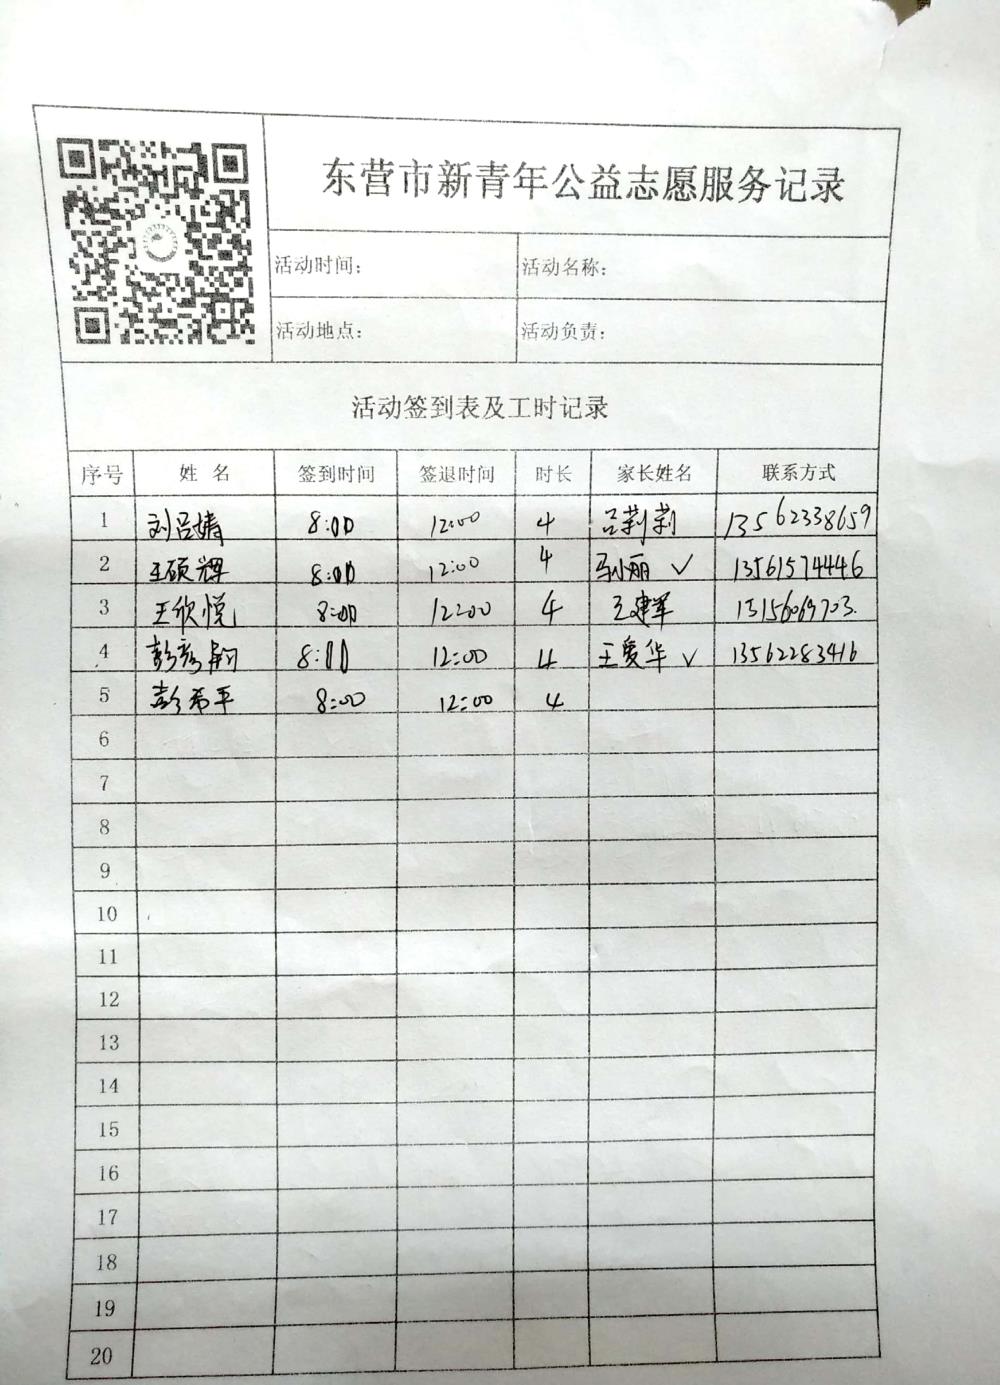 东营市新青年公益志愿服务记录
活动时间: 活动名称:
活动地点: 活动负责:
活动签到表及工时记录
序号 姓 名 签到时间 签退时间 时长 家长姓名 联系方式
1 刘吕婧 8:00 12:00 4 吕莉莉 13562338659
2 王硕辉 8:00 12:00 4 孙丽 ✓ 13561574446
3 王欣悦 8:00 12:00 4 王建军 15156069703.
4 8:00 12:00 4 王爱华 ✓ 13562283416
5 彭希平 8:00 12:00 4
6
7
8
9
10
11
12
13
14
15
16
17
18
19
20